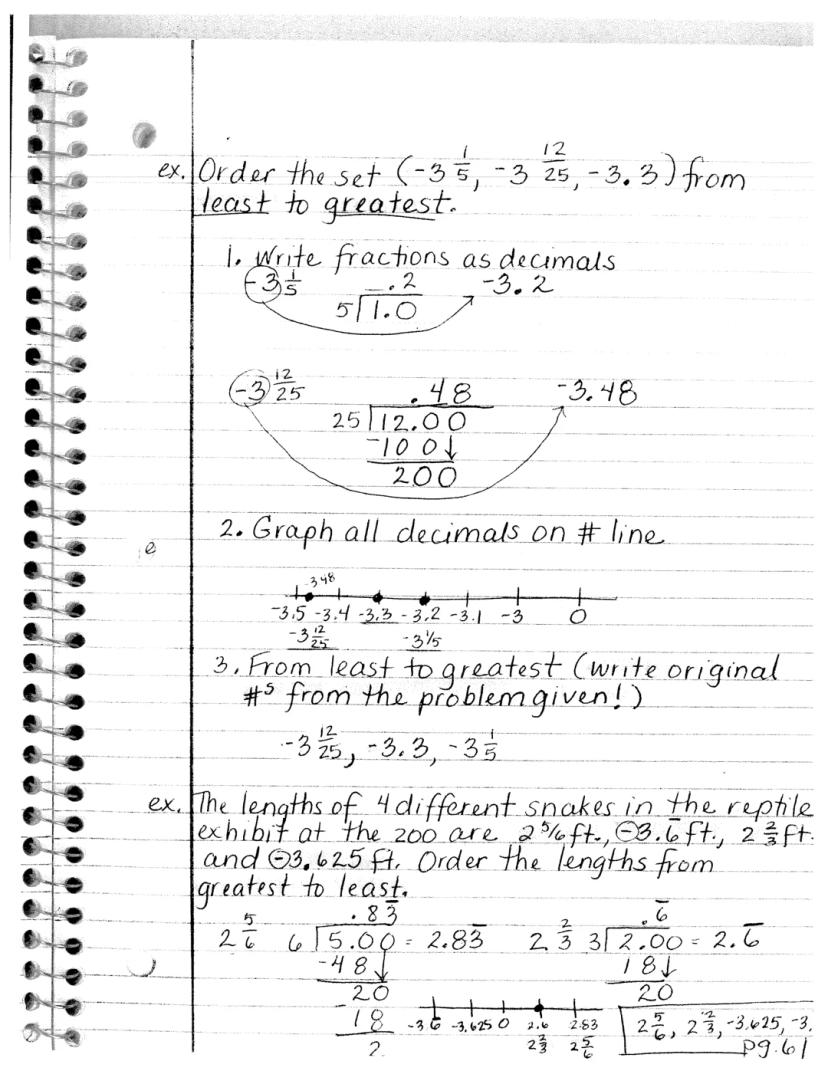 ex. Order the set (-3 1/5, -3 12/25, -3.3) from
least to greatest.
1. Write fractions as decimals
-3 1/5 .2 -3.2
5 1.0
-3 12/25 .48 -3.48
25 12.00
-100↓
200
2. Graph all decimals on # line
-3.48
-3.5 -3.4 -3.3 -3.2 -3.1 -3 0
-3 12/25 -3 1/5
3. From least to greatest (write original
#s from the problem given!)
-3 12/25, -3.3, -3 1/5
ex. The lengths of 4 different snakes in the reptile
exhibit at the zoo are 2 5/6 ft., -3.6̅ ft., 2 2/3 ft.
and -3.625 ft. Order the lengths from
greatest to least.
.83̅ .6̅
2 5/6 6 5.00 = 2.83̅ 2 2/3 3 2.00 = 2.6̅
-48↓ 18↓
20 20
18 -3.6 -3.625 0 2.6 2.83 2 5/6, 2 2/3, -3.625, -3.
2 2 2/3 2 5/6 pg. 61